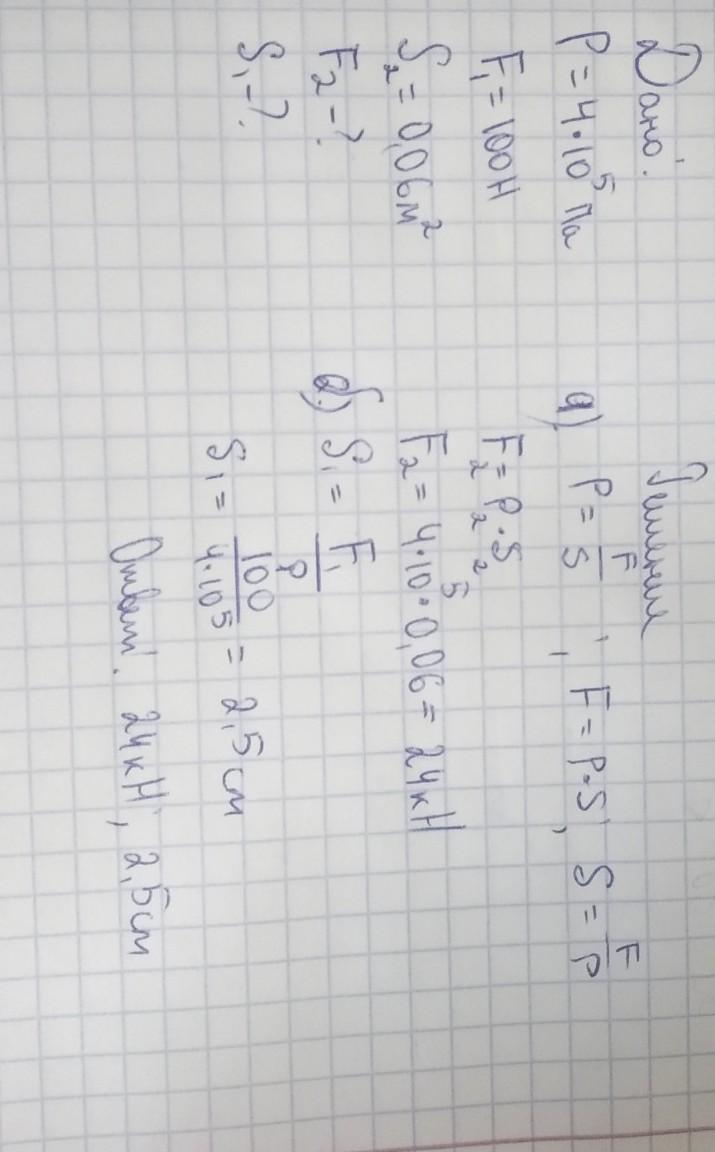 Дано:
P = 4·10⁵ Па
F₁ = 100 Н
S₂ = 0,06 м²
F₂ - ?
S₁ - ?
Решение
а) P = F/S, F = P·S, S = F/P
F₂ = P₂·S₂
F₂ = 4·10⁵·0,06 = 24 кН
б) S₁ = F₁/P
S₁ = 100/4·10⁵ = 2,5 см
Ответ: 24 кН, 2,5 см